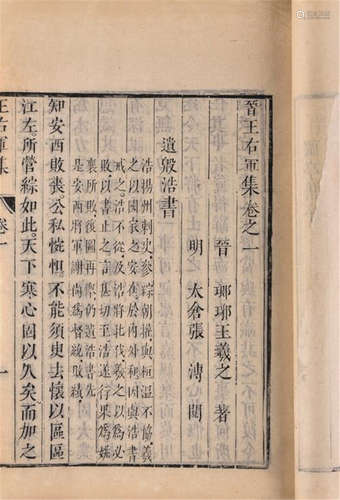 晉王右軍集卷之一
晉 瑯琊王羲之 著
明 太倉張 溥 閱
遺殷浩書
浩揚州刺史參綜朝權與桓溫不協羲
之以國家之安在於內外和因與浩書
戒之浩不從及浩將北伐羲之以為必
敗以書止之言甚切至浩遂行果為姚
襄所敗復圖再舉又遺浩書先
是安西將軍謝尚
知安西敗喪公私惋怛不能須臾去懷以區區
江左所營綜如此天下寒心固以久矣而加之
王右軍集 卷一 一